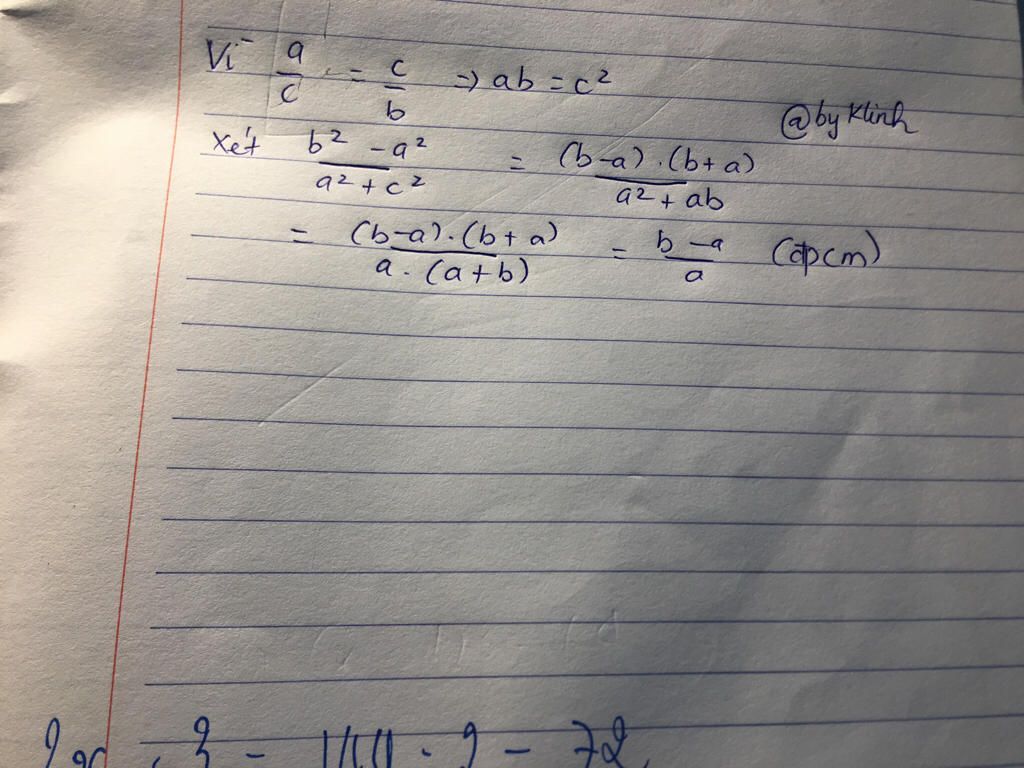 Vì a/c = c/b => ab = c²
@by Klinh
Xét (b² - a²)/(a² + c²) = ((b-a).(b+a))/(a² + ab)
= ((b-a).(b+a))/(a.(a+b)) = (b-a)/a (đpcm)